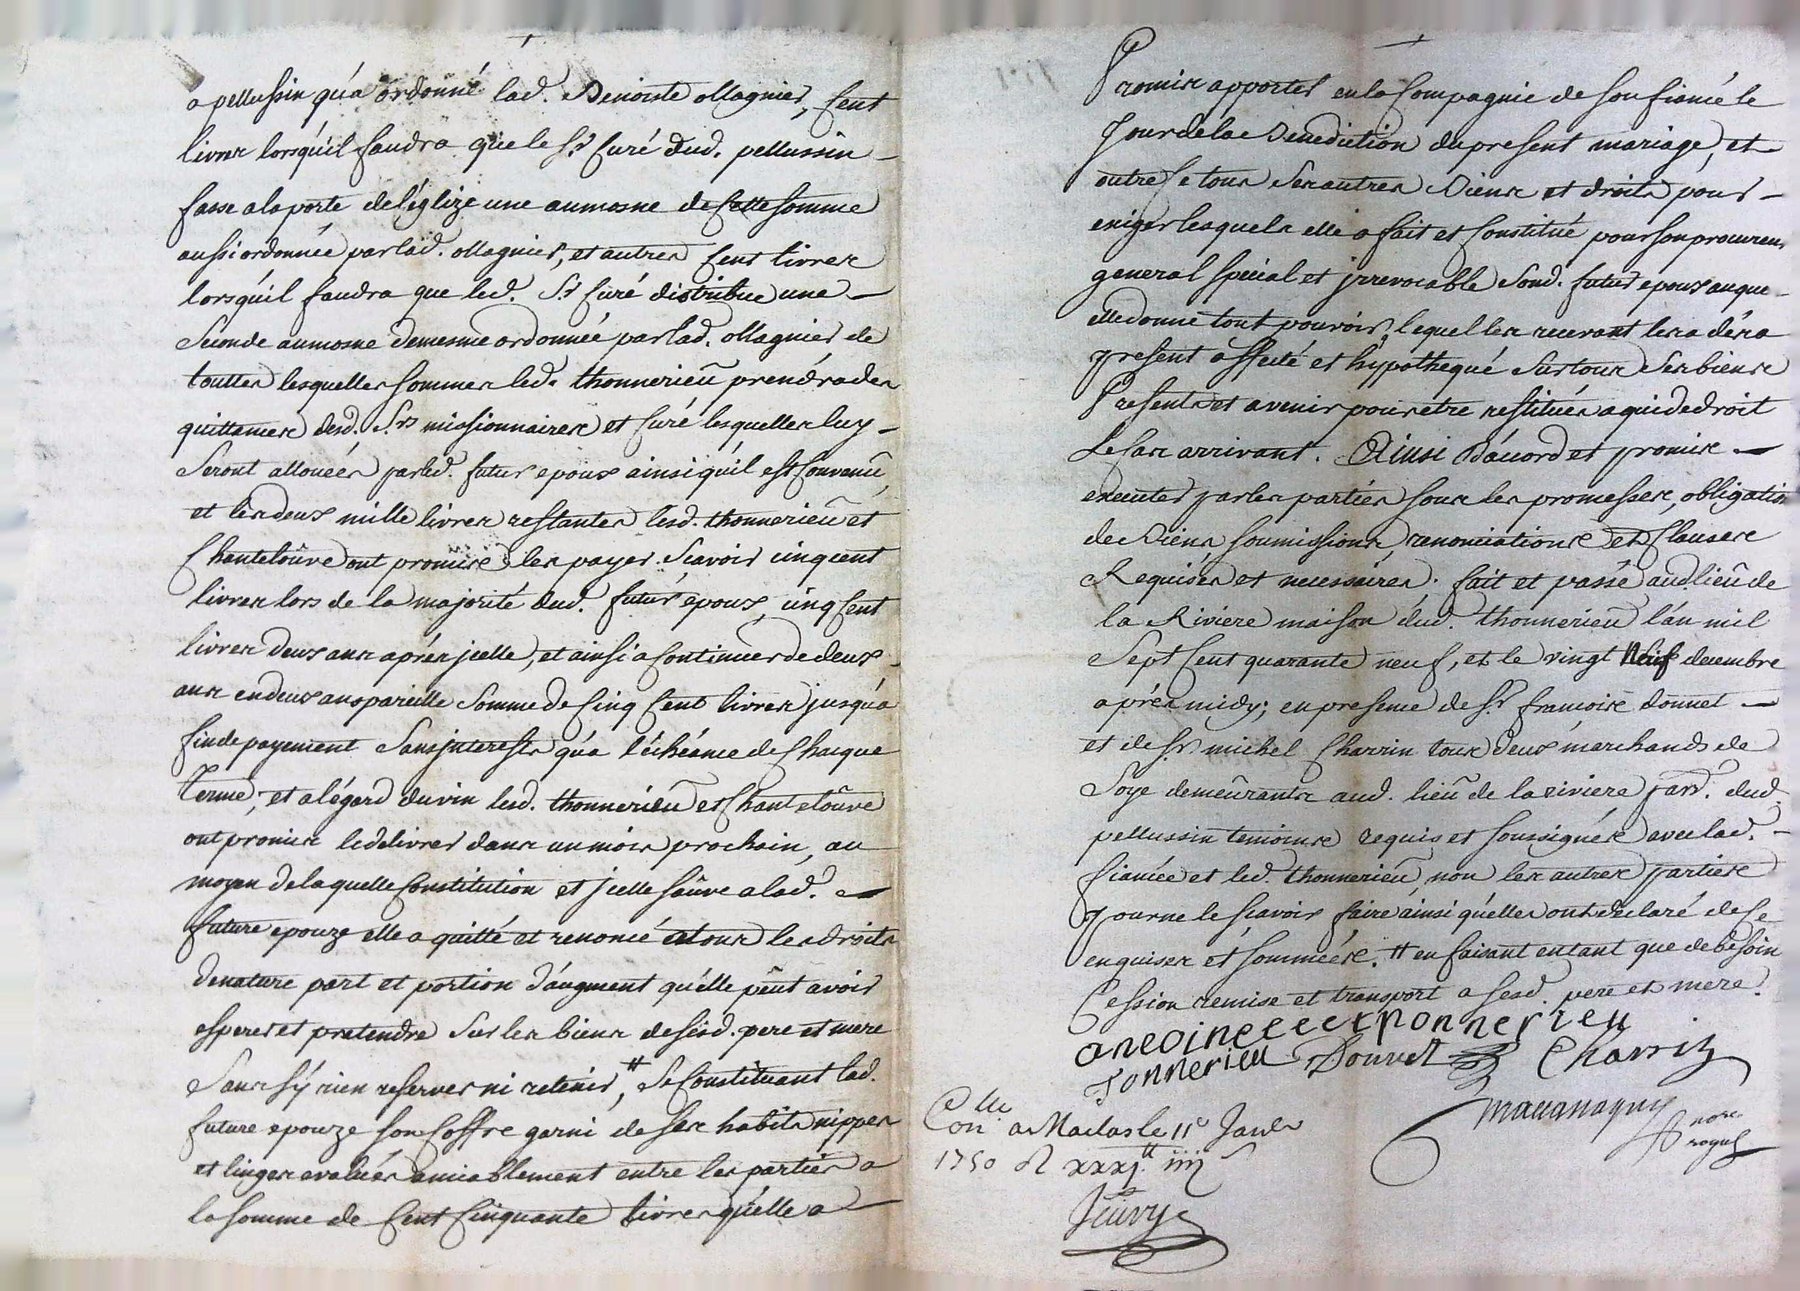 a pellussin qu'a ordonné lad. Benoiste Magnier, Cent
livres lorsqu'il faudra que le Sr Curé dud. pellussin
fasse a la porte de l'églize une aumosne de Cette somme
aussi ordonnée par lad. Magnier, et autres Cent livres
lorsqu'il faudra que led. Sr Curé distribue une
Seconde aumosne demesme ordonnée par lad. Magnier de
touttes lesquelles sommes led. thonnerieu prendra des
quittances desd. Srs missionnaires et Curé lesquelles luy
Seront allouées par led. futur epoux ainsi qu'il est Convenu,
et les deux mille livres restantes lesd. thonnerieu et
Chanteloûve ont promis les payer Scavoir cinq cent
livres lors de la majorité dud. futur epoux, cinq Cent
livres deux ans aprés jcelle, et ainsi a Continuer de deux
ans en deux ans pareille Somme de Cinq Cent livres jusqu'a
fin de payement Sans jnterests qu'a l'échéance de Chaque
Terme, et a légard du vin lesd. thonnerieu et Chanteloûve
ont promis le délivrer dans un mois prochain, au
moyen de laquelle Constitution et jcelle sauve a lad.
future epouze elle a quitté et renoncé a tous les droits
de nature part et portion d'augment qu'elle peut avoir
esperer et pretendre Sur les biens de sesd. pere et mere
Sans s'y rien reserver ni retenir, # Se Constituant lad.
future epouze son Coffre garni de ses habits nippes
et linges evalués amiablement entre les parties a
la somme de Cent Cinquante livres qu'elle a
Promis apporter en la Compagnie de son fiancé le
Jour de la Benediction du present mariage, et
outre Ce tous Ses autres Biens et droits pour
exiger lesquels elle a fait et Constitué pour son procureur
general spécial et jrrevocable Sond. futur epoux auquel
elle donne tout pouvoir, lequel les recevant les a dés a
present affecté et hypothequé Sur tous Ses biens
Presents et avenir pour etre restitués a qui de droit
Le Cas arrivant. Ainsi d'acord et promis
executer par les parties sous les promesses, obligation
de Biens, soumissions, renonciations et Clauses
Requises et necessaires. fait et passé aud. lieu de
la Riviere maison dud. thonnerieu l'an mil
Sept Cent quarante neuf, et le vingt Neuf decembre
aprés midy; en presence de Sr francois donnet
et de Sr michel Charrin tous deux marchands de
Soye demeurants aud. lieu de la riviere parr. dud.
pellussin temoins requis et soussignés avec lad.
fiancée et led. thonnerieu, non les autres parties
pour ne le scavoir faire ainsi qu'elles ont declaré de Ce
enquises et sommées. # en faisant en tant que de besoin
Cession remise et transport a sesd. pere et mere.
Tonnerieu Donnet Charrin
Conlle a Maclas le 11e Janvr
1750